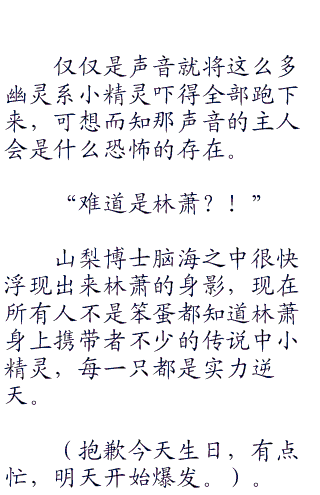 仅仅是声音就将这么多
幽灵系小精灵吓得全部跑下
来，可想而知那声音的主人
会是什么恐怖的存在。
“难道是林萧？！”
山梨博士脑海之中很快
浮现出来林萧的身影，现在
所有人不是笨蛋都知道林萧
身上携带者不少的传说中小
精灵，每一只都是实力逆
天。
（抱歉今天生日，有点
忙，明天开始爆发。）。